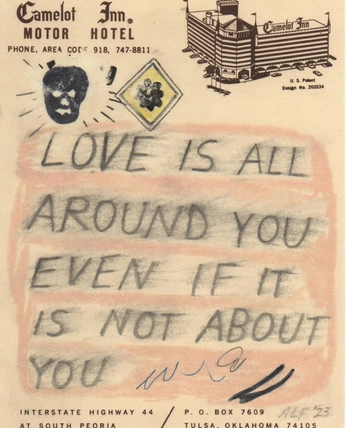 Camelot Inn®
MOTOR HOTEL
PHONE, AREA CODE 918, 747-8811
Camelot Inn
U. S. Patent
Design No. 203334
LOVE IS ALL
AROUND YOU
EVEN IF IT
IS NOT ABOUT
YOU
INTERSTATE HIGHWAY 44 / P. O. BOX 7609
AT SOUTH PEORIA / TULSA, OKLAHOMA 74105
ALF '23